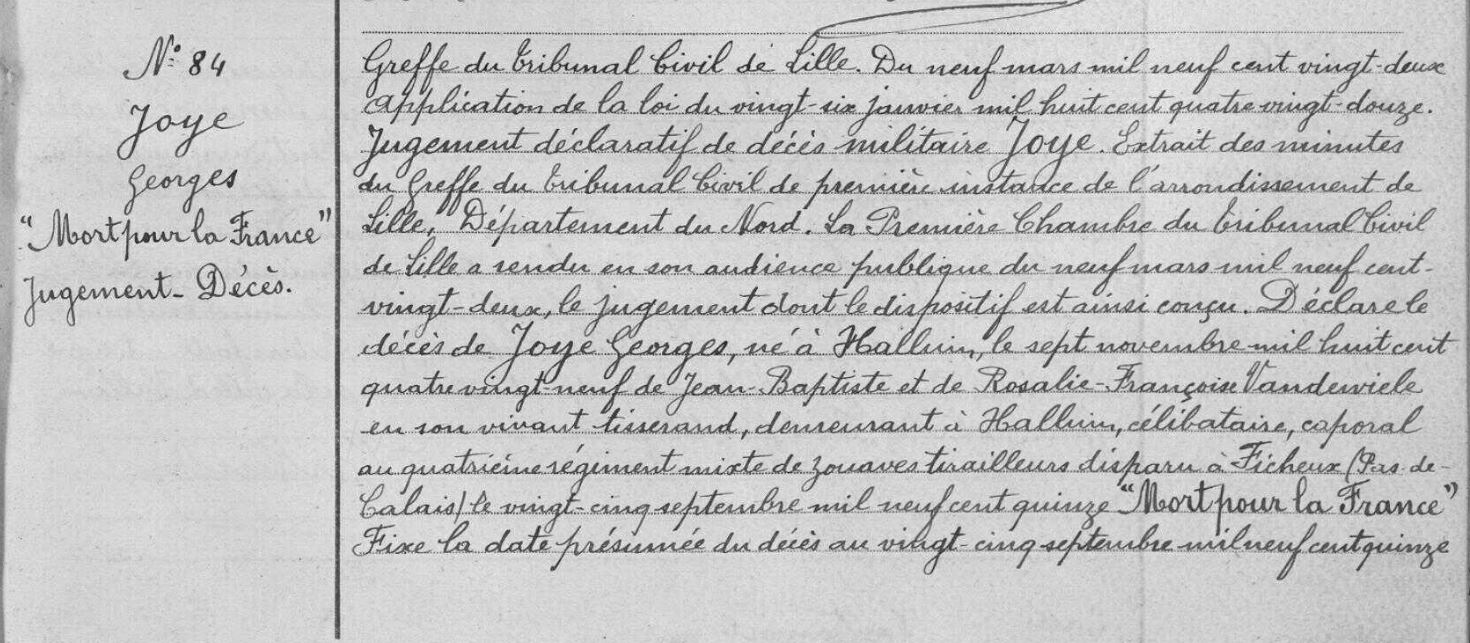 N° 84
Joye
Georges
"Mort pour la France"
Jugement - Décès.
Greffe du Tribunal Civil de Lille. Du neuf mars mil neuf cent vingt-deux
Application de la loi du vingt-six janvier mil huit cent quatre vingt-douze.
Jugement déclaratif de décès militaire Joye. Extrait des minutes
du Greffe du Tribunal Civil de première instance de l'arrondissement de
Lille, Département du Nord. La Première Chambre du Tribunal Civil
de Lille a rendu en son audience publique du neuf mars mil neuf cent-
vingt-deux, le jugement dont le dispositif est ainsi conçu. Déclare le
décès de Joye Georges, né à Halluin, le sept novembre mil huit cent
quatre vingt-neuf de Jean-Baptiste et de Rosalie-Françoise Vandewiele
en son vivant tisserand, demeurant à Halluin, célibataire, caporal
au quatrième régiment mixte de zouaves tirailleurs disparu à Ficheux (Pas-de-
Calais) le vingt-cinq septembre mil neuf cent quinze "Mort pour la France"
Fixe la date présumée du décès au vingt-cinq septembre mil neuf cent quinze